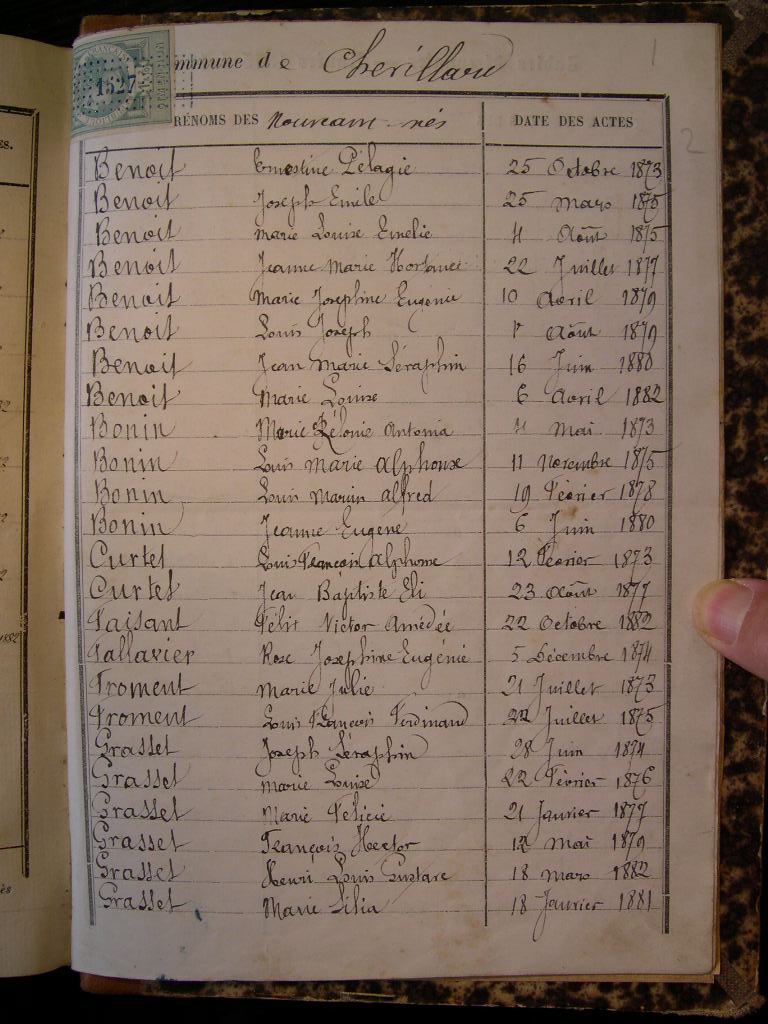 1527
mmune de Cherillard
1
RÉNOMS DES Nouveaux-nés DATE DES ACTES
2
Benoit Ernestine Pélagie 25 Octobre 1873
Benoit Joseph Emile 25 Mars 1875
Benoit Marie Louise Emélie 4 Août 1875
Benoit Jeanne Marie Hortense 22 Juillet 1877
Benoit Marie Josephine Eugénie 10 Avril 1879
Benoit Louis Joseph 1er Août 1879
Benoit Jean Marie Séraphin 16 Juin 1880
Benoit Marie Louise 6 Avril 1882
Bonin Marie Antonia 4 Mai 1873
Bonin Louis Marie Alphonse 11 Novembre 1875
Bonin Louis Marius Alfred 19 Février 1878
Bonin Jeanne Eugène 6 Juin 1880
Curtet Louis François Alphonse 12 Février 1873
Curtet Jean Baptiste Eli 23 Août 1877
Faisant Félix Victor Amédée 22 Octobre 1882
Fallavier Rose Josephine Eugénie 5 Décembre 1874
Froment Marie Julie 21 Juillet 1873
Froment Louis François Ferdinand 22 Juillet 1875
Grasset Joseph Séraphin 28 Juin 1874
Grasset Marie Louise 22 Février 1876
Grasset Marie Félicie 21 Janvier 1877
Grasset François Hector 12 Mai 1879
Grasset Henri Louis Gustave 18 Mars 1882
Grasset Marie 18 Janvier 1881